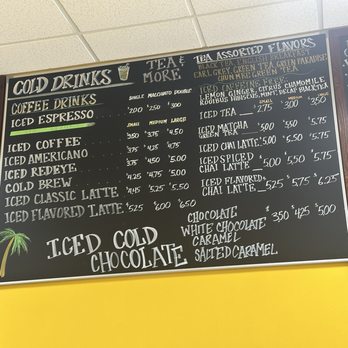 COLD DRINKS
TEA &
MORE
COFFEE DRINKS SINGLE MACCHIATO DOUBLE
ICED ESPRESSO $2.00 $2.50 $3.00
SMALL MEDIUM LARGE
ICED COFFEE $3.50 $3.75 $4.50
ICED AMERICANO $3.75 $4.50 $5.00
ICED REDEYE
COLD BREW $4.25 $4.75 $5.00
ICED CLASSIC LATTE $4.45 $5.25 $5.50
ICED FLAVORED LATTE $5.25 $6.00 $6.50
ICED COLD
CHOCOLATE
TEA ASSORTED FLAVORS
BLACK TEA ENGLISH BREAKFAST
EARL GREY GREEN TEA GREEN PARADISE
CHUN MEE GREEN TEA
ICED CAFFEINE FREE
LEMON GINGER, CITRUS CHAMOMILE
ROOIBUS HIBISCUS, MINT, DECAF BLACK TEA
ICED TEA $2.75 $3.00 $3.50
ICED MATCHA
GREEN TEA $5.00 $5.50 $5.75
ICED CHAI LATTE $5.00 $5.50 $5.75
ICED SPICED
CHAI LATTE $5.00 $5.50 $5.75
ICED FLAVORED
CHAI LATTE $5.25 $5.75 $6.25
CHOCOLATE $3.50 $4.25 $5.00
WHITE CHOCOLATE
CARAMEL
SALTED CARAMEL